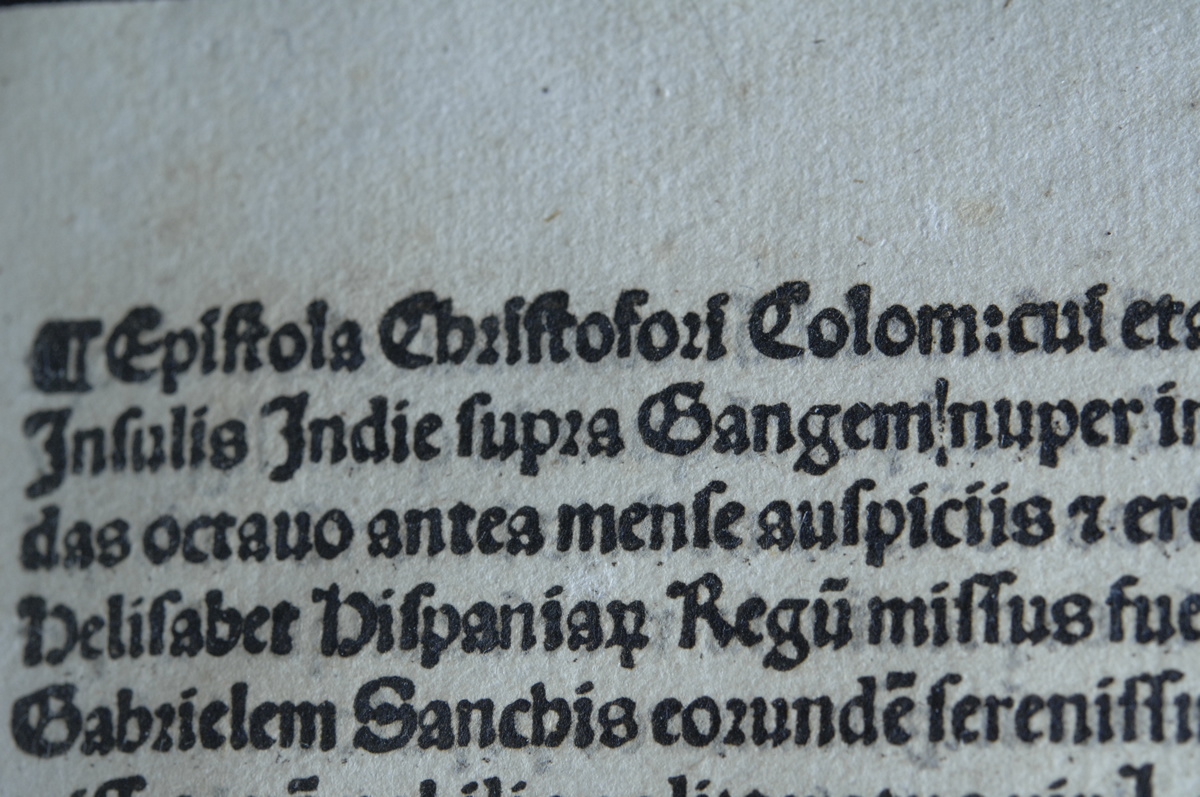 ¶ Epiſtola Chriſtofori Colom: cui
Inſulis Indie ſupra Gangem/ nuper
das octauo antea menſe auſpiciis ⁊
Heliſabet Hiſpaniaꝝ Regū miſſus
Gabrielem Sanchis eorundē